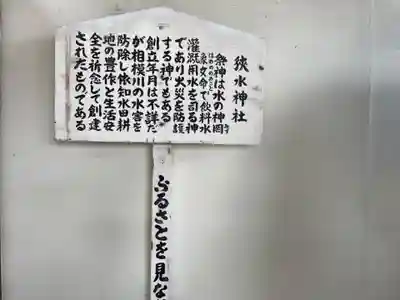 狹水神社
祭神は水の神罔
象女命で飲料水
灌漑用水を司る神
であり火災を防護
する神でもある
創立年月は不詳だ
が相模川の水害を
防除し依知水田耕
地の豊作と生活安
全を祈念して創建
されたものである
ふるさとを見な